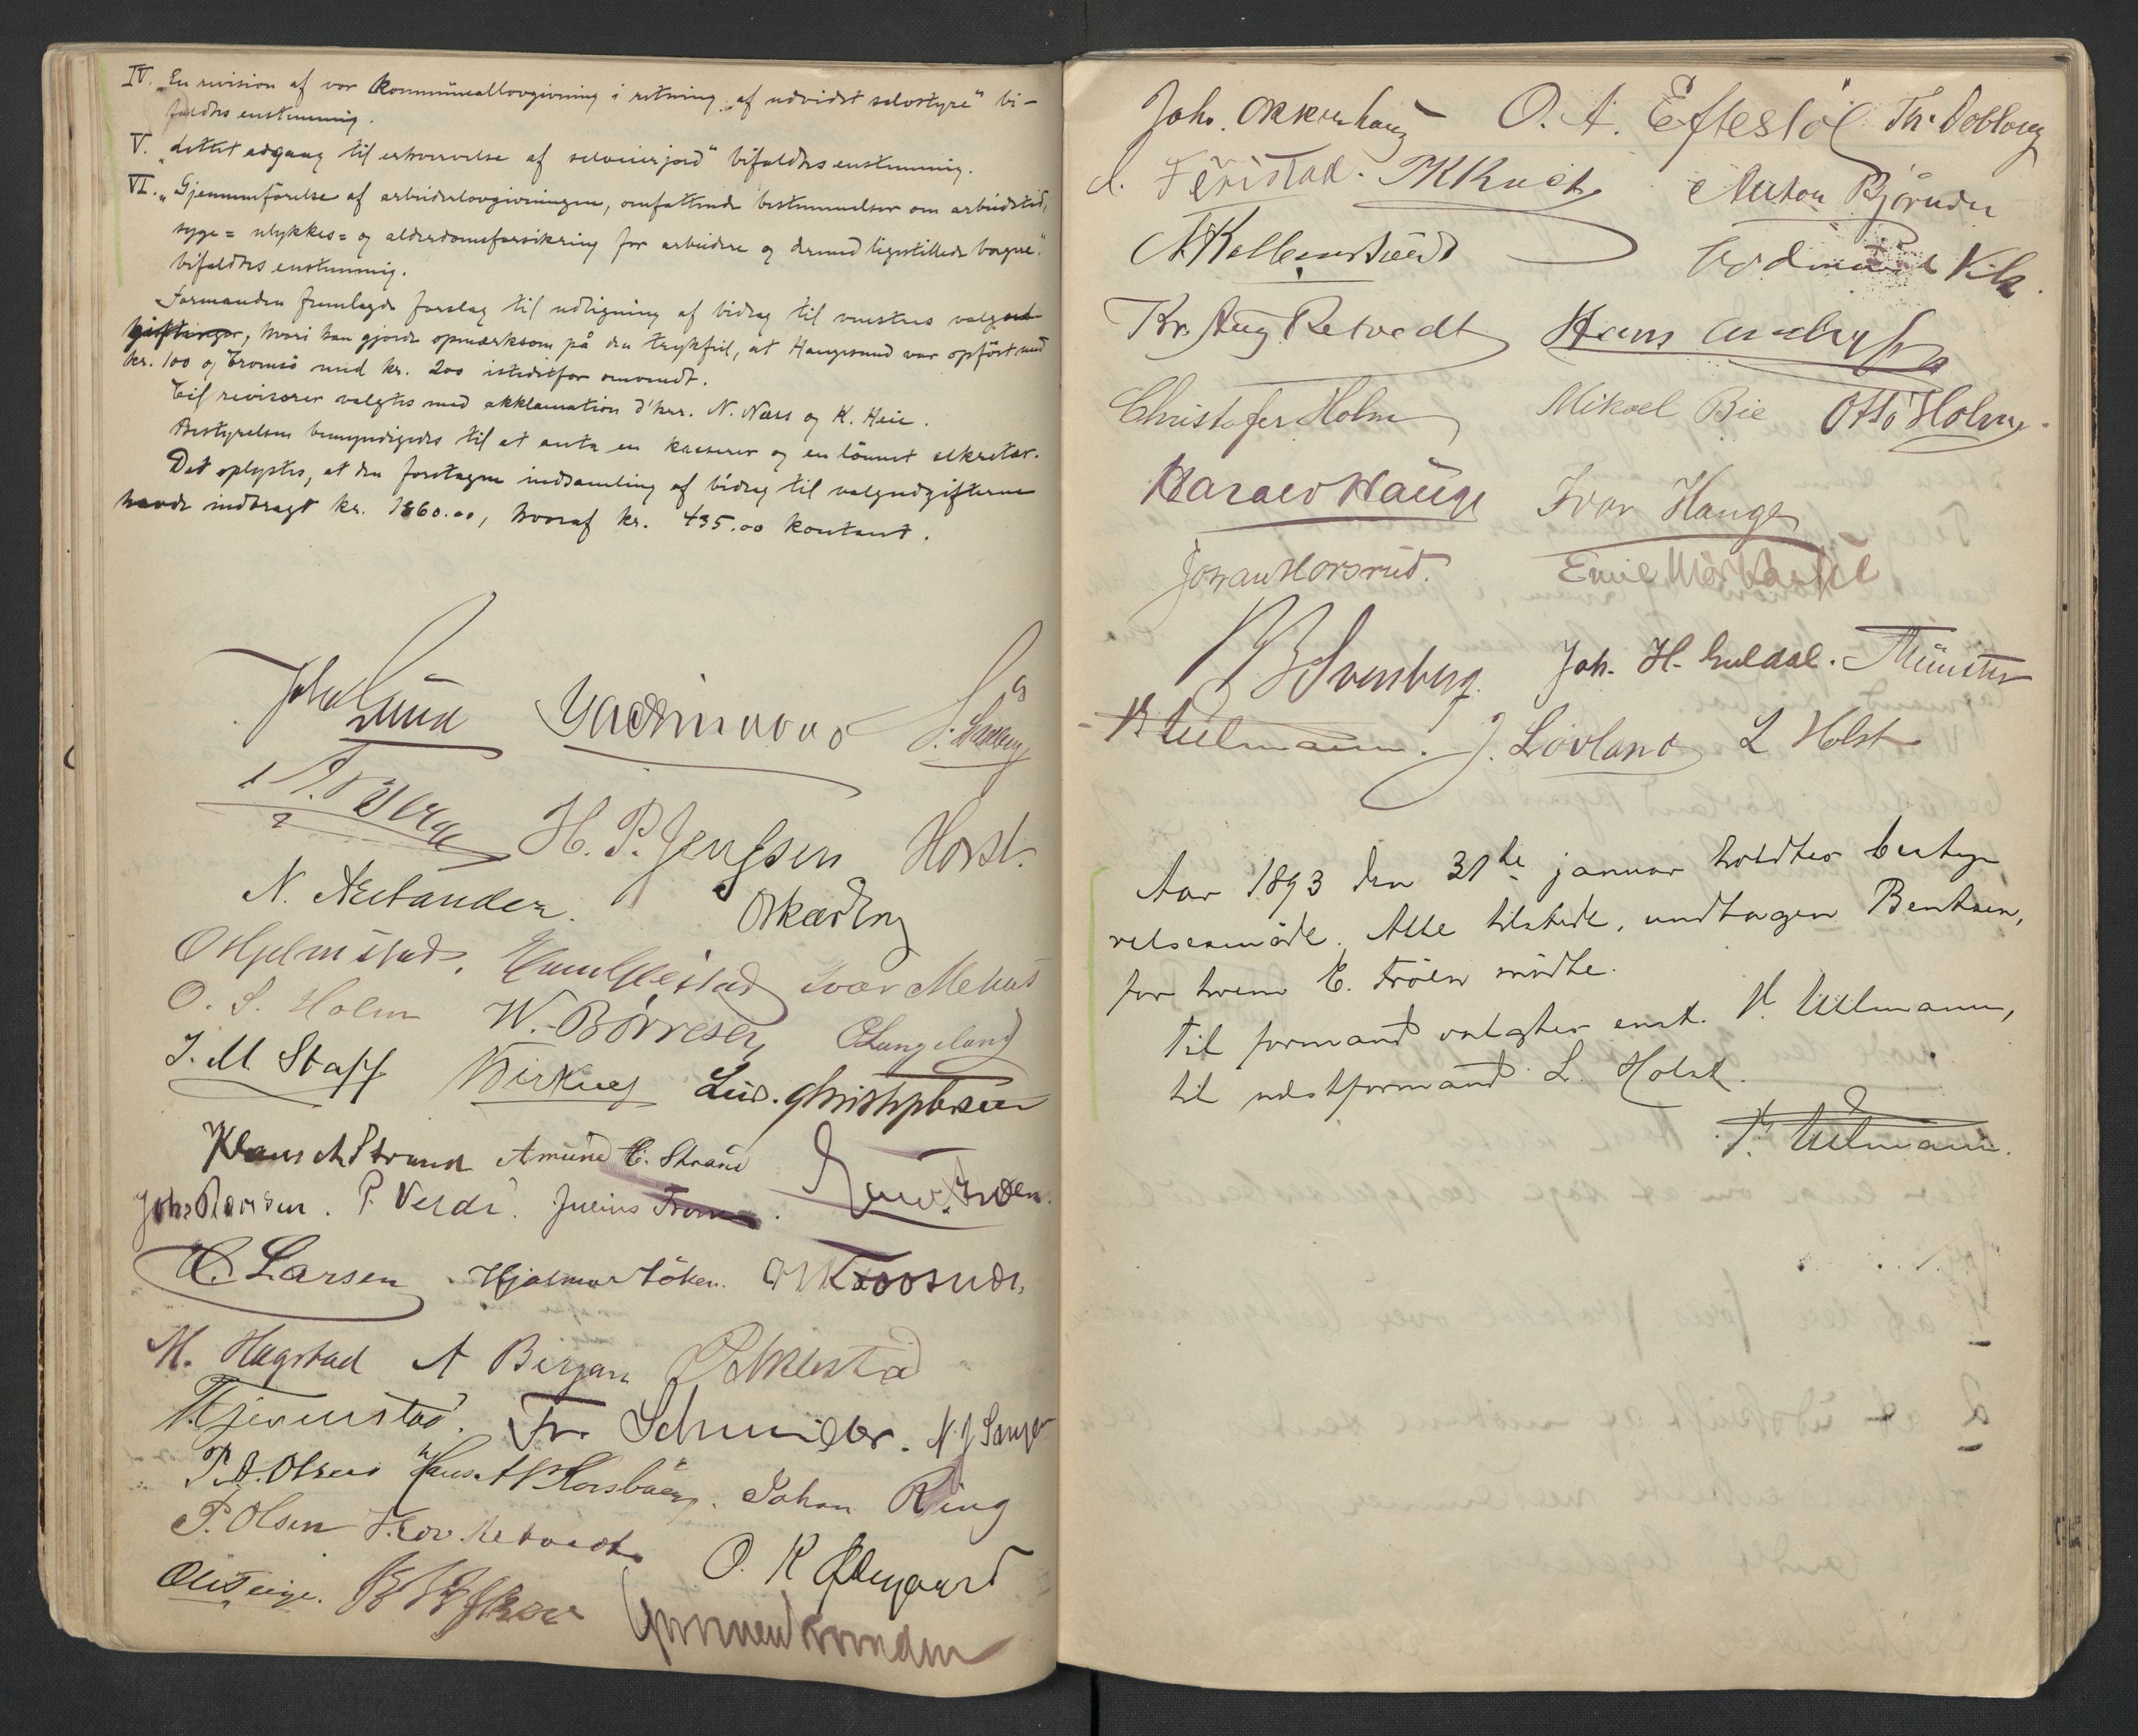 IV. „En revision af vor kommunallovgivning i retning af udvidet selvstyre" bi-
faldtes enstemmig.
V. „Lettet adgang til erhvervelse af selveierjord" bifaldtes enstemmig.
VI. „Gjennemførelse af arbeiderlovgivningen, omfattende bestemmelser om arbeidstid,
syge= ulykkes= og alderdomsforsikring for arbeidere og dermed ligestillede borgere."
bifaldtes enstemmig.
Formanden fremlagde forslag til udligning af bidrag til venstres valgud-
giftinger, hvori han gjorde opmærksom på den trykfeil, at Haugesund var opført med
kr. 100 og Tromsö med kr. 200 istedetfor omvendt.
Til revisorer valgtes med akklamation d'hrr. N. Næss og K. Heie.
Bestyrelsen bemyndigedes til at anta en kasserer og en lønnet sekretær.
Det oplystes, at den foretagne indsamling af bidrag til valgudgifterne
havde indbragt kr. 1860.00, hvoraf kr. 435.00 kontant.
John Lund
A. Berge H. P. Jenssen Horst.
N. Nelander. Oskar Eng
O Hjelmstad. Ivar Melhus
O. S. Holm W. Börresen O Langeland
I. M Staff Virkney Lud. Christophersen
Klaus A Strand Amund C. Strand
Johs P. Verdi. Julius From
C. Larsen Hjalmar Löken.
M. Hagstad A Bergan
Fr. Schmidler. N. J.
P. A. Olsen Hans A Korsbäen. Johan Ring
P. Olsen Retvedt
O. K Ødegaard
Ole Teige.
Johs. Okkenhaug O. A. Eftestöl Th. Dobloug
Anton Bjørnder
Kr. Aug Retvedt Hans
Christofer Holm Mikael Bie Otto Holm.
Harald Hauge Ivar Hauge
Johan Horsrud. Emil
B Svensberg. Joh. H. Guldal. Münster
V. Ullmann. J. Lövland L Holst
Aar 1893 den 31te januar holdtes besty-
relsesmöde. Alle tilstede, undtagen Bentsen,
for hvem E. Fröen mödte.
Til formand valgtes enst. V. Ullmann,
til næstformand L. Holst.
V. Ullmann.